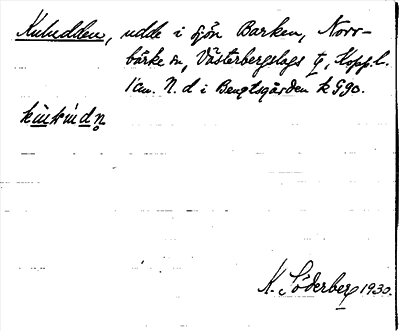 Kuludden, udde i sjön Barken, Norr-
bärke sn, Västerbergslags tg, Kopp. l.
1 cm. N. d i Bengtsgården k G 90.
K. Söderberg 1930.